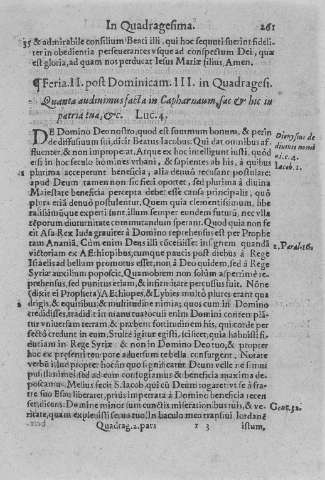 In Quadragesima. 261
35 & admirabile consilium Beati illi. qui hoc sequuti fuerint fideli-
ter in obedientia perseverantes vsque ad conspectum Dei, quæ
est gloria, ad quam nos perducat Iesus Mariæ filius, Amen.
¶ Feria. II. post Dominicam. III. in Quadragesi.
Quanta audiuimus facta in Capharnaum, fac & hic in
patria tua, &c. Luc. 4,
DE Domino Deo nostro, quod est summum bonum, & perin
de diffusiuum sui, dicit Beatus Iacobus: Qui dat omnibus af-
fluenter, & non improperat, Atque ex hoc intelligunt iusti. quod
etsi in hoc seculo homines vrbani, & sapientes ab his, á quibus
plurima acceperunt beneficia, alia denuò recusant postulare:
apud Deum tamen non sic fieri oportet, sed plurima á diuina
Maiestate beneficia percepta debet esse causa principalis, quò
plura etiá denuò postulentur. Quem quia clementissimum, libe
ralissimúmque experti sunt, illum semper eundem futurú, nec vlla
téporum diuturnitate commutandum sperant. Quod quia non fe
cit Asa Rex Iuda grauiter á Domino reprehensus est per Prophe
tam Ananiá. Cúm enim Deus illi concessisset insignem quandá
victoriam ex AEthiopibus, cumque paucis post diebus á Rege
Israelis ad bellum promotus esset, non à Deo quidem, sed à Rege
Syriæ auxilium poposcit, Quamobrem non solùm asperrimè re-
prehensus, sed punitus etiam, & infirmitate percussus fuit. Nóne
(dixit ei Propheta) AEthiopes, & Lybies multò plures erant qua
drigis, & equitibus, & multitudine nimia; quos cum illi Domino
credidisses, tradidit in manu tua oculi enim Domini contem plá-
tur vniuersam terram, & præbent fortitudinem his, qui corde per
fectò credunt in eum, Stultè igitur egisti, scilicet, quia habuisti fi-
dutiam in Rege Syriæ & non in Domino Deo tuo, & propter
hoc ex præsenti tempore aduersum te bella consurgent. Notate
verbú illud propter hoc án quo significatur Deum velle ne simus
pusillanimes sed ad eum confugiamus & beneficia maxima de-
poscamus. Melius fecit S. Iacob. qui cú Deum rogaret vt se à fra-
tre suo Esau liberaret, prius impetrata á Domino beneficia recen
sens dicens: Domine minor sum cunctis miserationibus tuis, & ve-
ritate, quam explesti seruo tuo: In baculo meo transiui Iordané
Quadrag. 2. pars r 3 istum,
Dionysius de
diuinis nomi
ni. c. 4.
Iacob. 1.
2. Paral. 16.
Gene. 32.